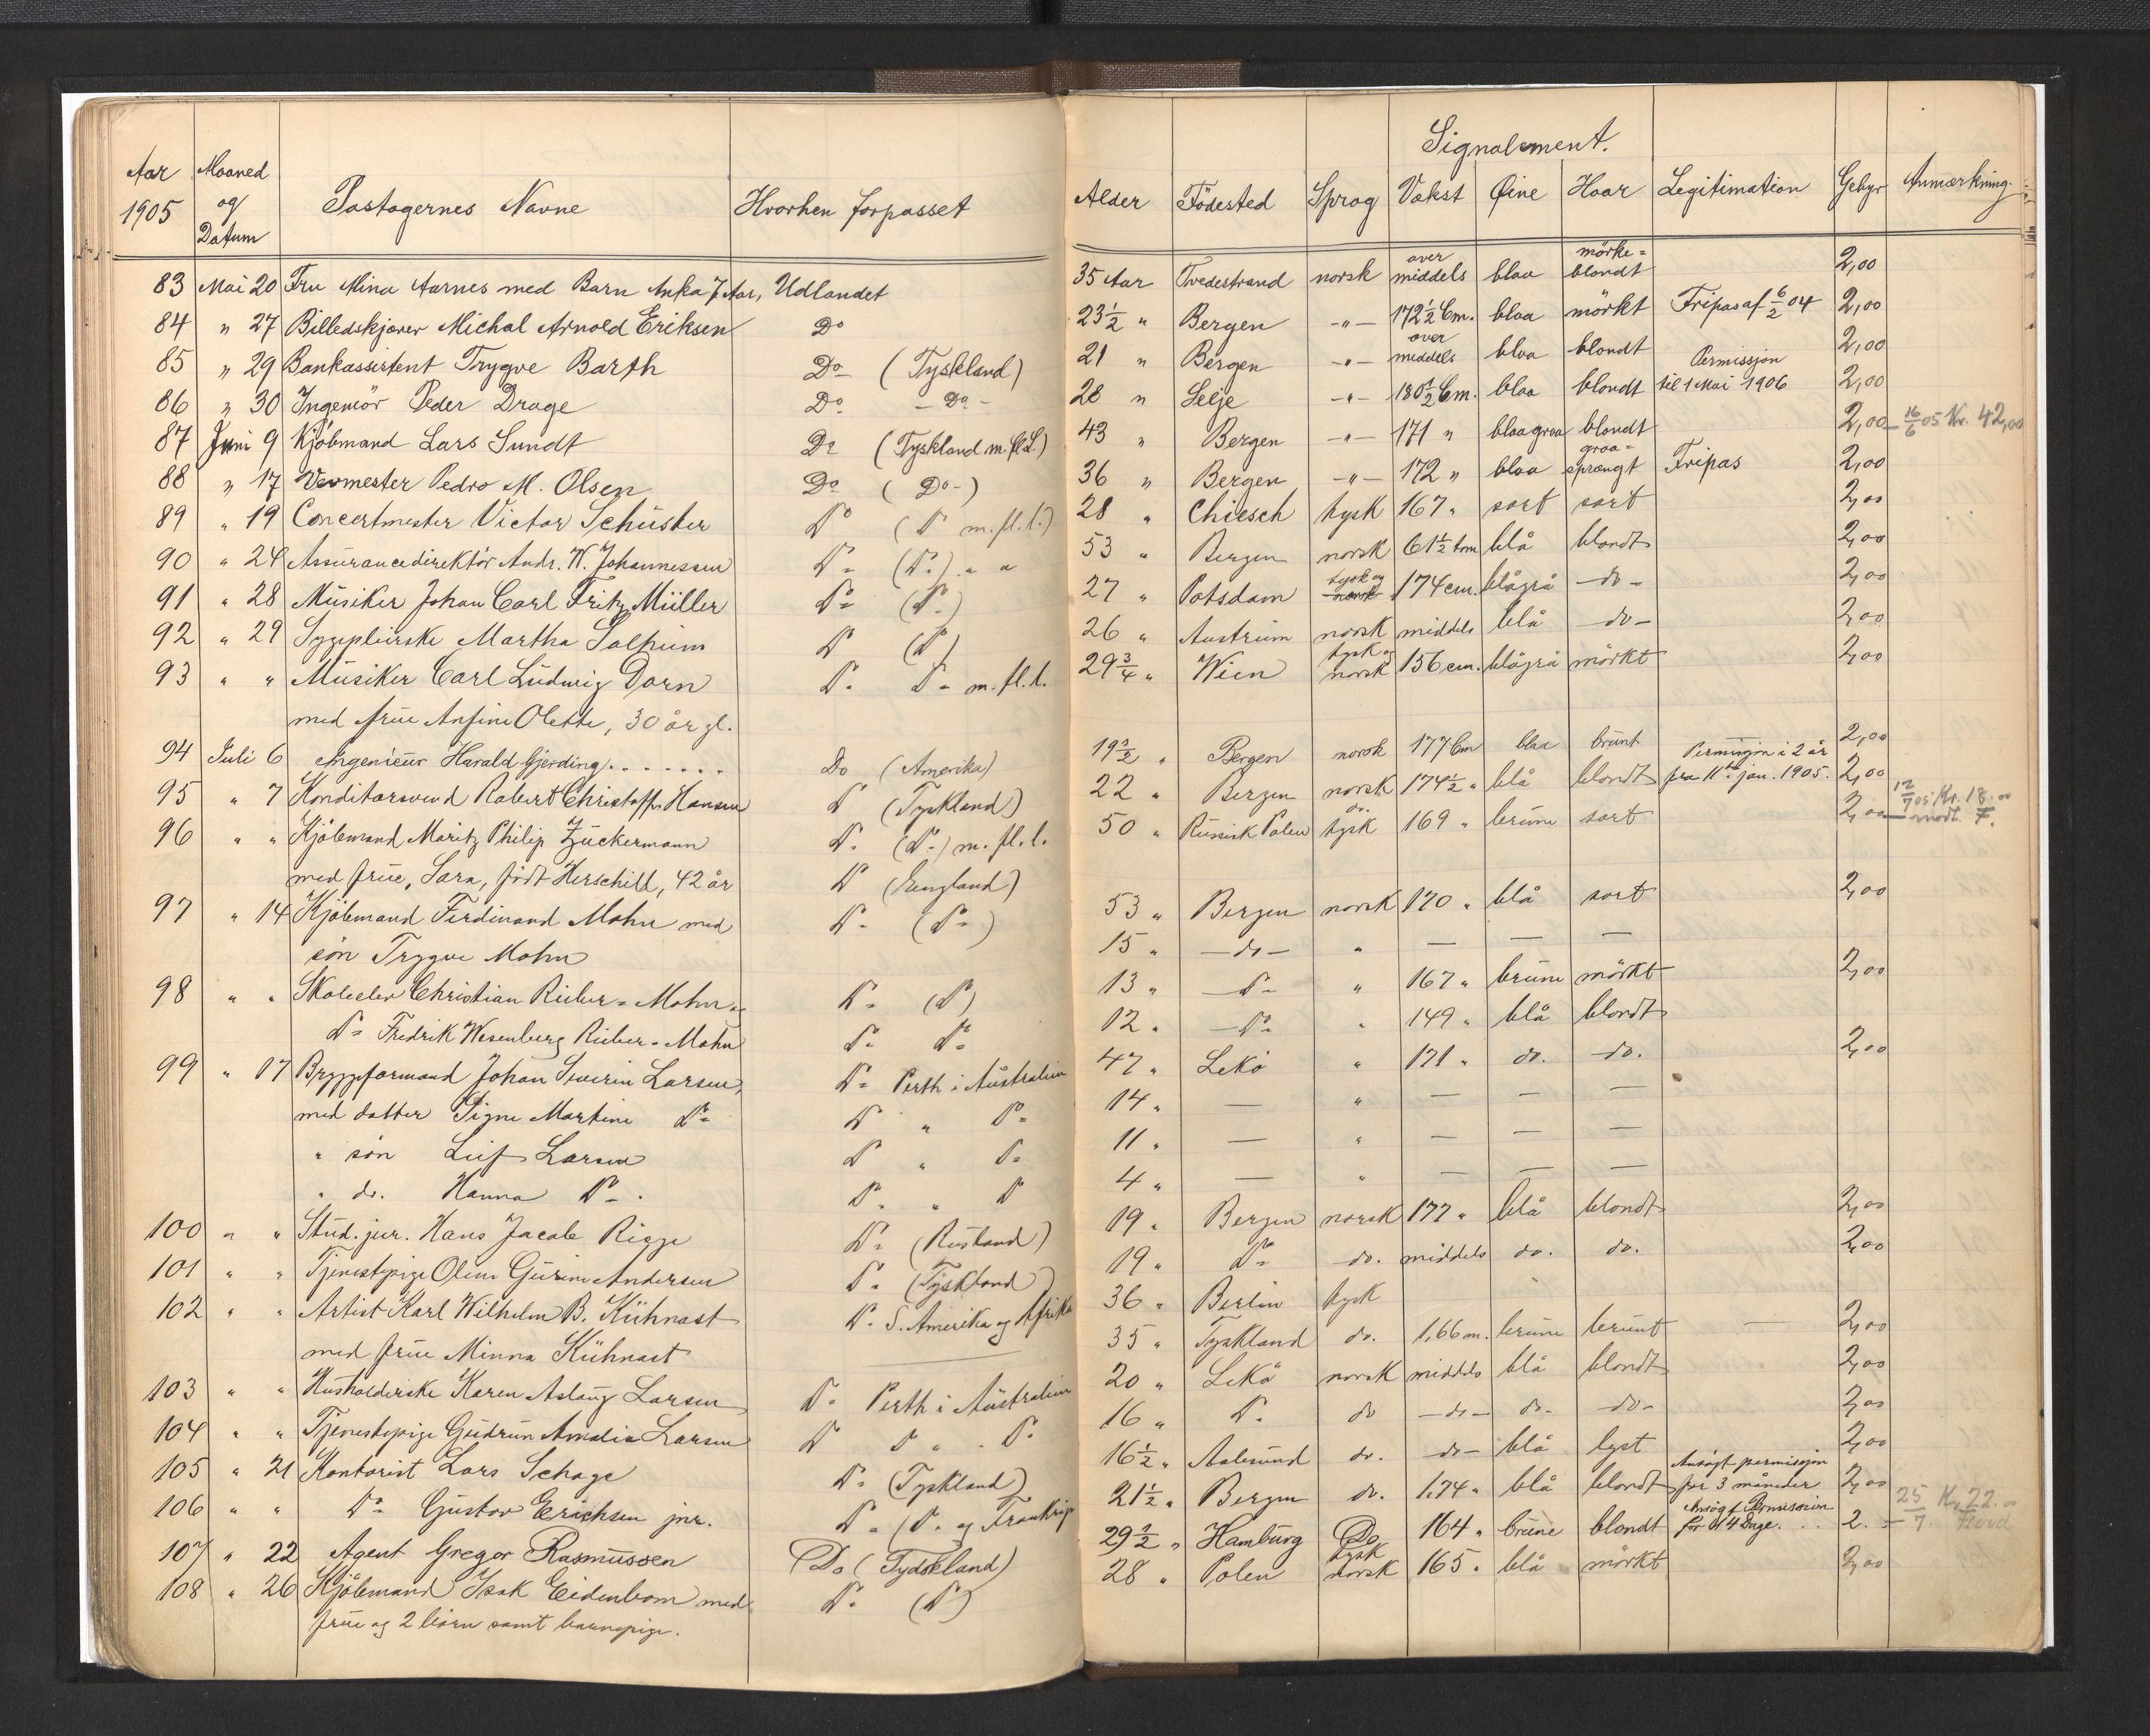 Signalement.
Aar 1905 Maaned og Datum Pastagernes Navne Hvorhen forpasset Alder Födested Sprog Vækst Øine Haar Legitimation Gebyr Anmærkning.
83 Mai 20 Fru Mina Aarnes med Barn Anka 7 Aar, Udlandet 35 Aar Tvedestrand norsk over middels blaa mörke= blondt 2,00
84 " 27 Billedskjærer Michal Arnold Eriksen Do 23 1/2 " Bergen -"- 172 1/2 Cm. blaa mörkt Fripas af 6/2 04 2,00
85 " 29 Bankassistent Trygve Barth Do (Tyskland) 21 " Bergen -"- over middels blaa blondt 2,00
86 " 30 Ingeniör Peder Drage Do. - Do - 28 " Selje -"- 180 1/2 Cm. blaa blondt Permissjon til 1 Mai 1906 2,00
87 Juni 9 Kjöbmand Lars Sundt Do (Tyskland m.fl.L.) 43 " Bergen -"- 171 " blaagraa blondt 2,00 16/6 05 Kr. 42,00
88 " 17 Vævmester Pedro M. Olsen Do ( Do-) 36 " Bergen -"- 172 " blaa graa= sprængt Fripas 2,00
89 " 19 Concertmester Victor Schüster Do (Do m.fl.l.) 28 " Chiesch tysk 167 " sort sort 2,00
90 " 24 Assurancedirektör Andr. W. Johannessen Do (Do) " " 53 " Bergen norsk 61 1/2 tom blå blondt 2,00
91 " 28 Musiker Johan Carl Fritz Müller Do (Do) 27 " Potsdam tysk og norsk 174 cm. blågrå -do- 2,00
92 " 29 Sygepleirske Martha Solheim Do (Do) 26 " Austrheim norsk middels blå -do- 2,00
93 " " Musiker Carl Ludwig Dorn Do. Do - m.fl.l. 29 3/4 " Wien tysk og norsk 156 cm. blågrå mörkt 2,00
med frue Anfine Olette, 30 år gl.
94 Juli 6 Ingenieur Harald Gjerding....... Do (Amerika) 19 1/2 " Bergen norsk 177 Cm blaa brunt 2,00
95 " 7 Konditorsvend Robert Christoffer Hansen Do (Tyskland) 22 " Bergen norsk 174 1/2 " blå blondt Permisjon i 2 år fra 11te jan. 1905. 2,00
96 " " Kjöbmand Moritz Philip Zuckermann Do. (Do-) m.fl.l. 50 " Russisk Polen do. tysk 169 " brune sort 2,00 12/7 05 Kr. 18.00 modt. F.
med frue, Sara, födt Herschill, 42 år Do (England)
97 " 14 Kjöbmand Ferdinand Mohn med Do. (Do=) 53 " Bergen norsk 170 " blå sort 2,00
sön Trygve Mohn 15 " -do- " — — —
98 " " Skoleelev Christian Rieber=Mohn og Do. (Do) 13 " -Do- " 167 " brune mörkt 2,00
Do= Fredrik Wesenberg Rieber=Mohn Do. Do= 12 " -Do- " 149 " blå blondt
99 " 17 Bryggeformand Johan Severin Larsen, Do= Perth i Australien 47 " Lekö " 171 " do. -do. 2,00
med datter Signe Martine Do= Do " Do= 14 " — " — — —
" sön Leif Larsen Do " Do= 11 " — " — — —
" do. Hanna Do=. Do. " Do 4 " — " — — —
100 " " Stud. jur. Hans Jacob Rigge Do= (Rusland) 19 " Bergen norsk 177 " blå blondt 2,00
101 " " Tjenestepige Oline Gurine Andersen Do. (Tyskland) 19 " Do= do. middels do. do. 2,00
102 " " Artist Karl Wilhelm B. Kühnast Do. S. Amerika og Afrika 36 " Berlin tysk
med frue Minna Kühnast — 35 " Tyskland do. 1,66 m. brune brunt — 2,00
103 " " Husholderske Karen Aslaug Larsen Do= Perth i Australien 20 " Lekö norsk middels blå blondt 2,00
104 " " Tjenestepige Gudrun Amalie Larsen Do Do " . Do. 16 " Do. do -do- do- -do- 2,00
105 " 21 Kontorist Lars Schage Do= (Tyskland) 16 1/2 " Aalesund do. -do- blå lyst 2,00
106 " " Do= Gustav Erichsen jnr. Do= (Do. og Frankrig 21 1/2 " Bergen do. 1.74 " blå blondt Ansögt permisjon for 3 måneder 2,00
107 " 22 Agent Gregor Rasmussen Do (Tydskland) 29 1/2 " Hamburg Do 164 " brune blondt Ansögt Permission for 14 Dage. .. 2. - 25/7 Kr 22.-
108 " 26 Kjöbmand Isak Eidenbom med Do. (Do) 28 " Polen tysk norsk 165 " blå mörkt 2,00
frue og 2 börn samt barnepige.